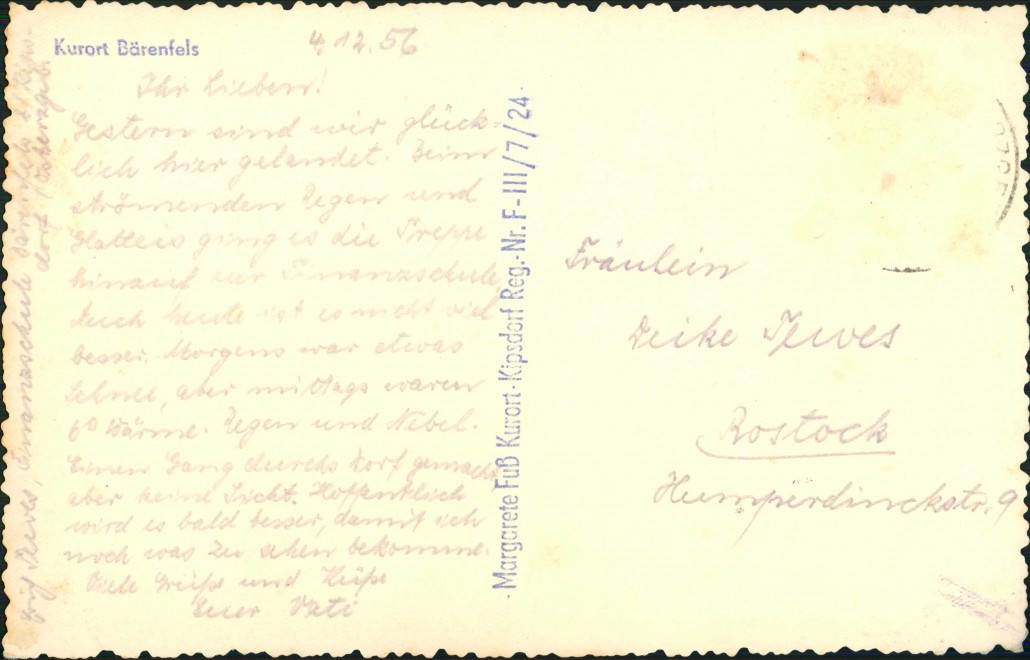 Kurort Bärenfels
4.12.56
Ihr Lieben!
Gestern sind wir glück-
lich hier gelandet. Beim
strömenden Regen und
Glatteis ging es die Treppe
hinauf zur Finanzschule
Auch heute ist es nicht viel
besser. Morgens war etwas
Schnee, aber mittags waren
6° Wärme. Regen und Nebel.
Einen Gang durchs Dorf gemacht
aber keine Sicht. Hoffentlich
wird es bald besser, damit ich
noch was zu sehen bekomme.
Viele Grüße und Küße
Euer Vati
Finanzschule Bärenfels
dorf
-Margarete Fuß Kurort-Kipsdorf Reg.-Nr. F-III/7/24-
Fräulein
Rostock
Humperdinckstr. 9